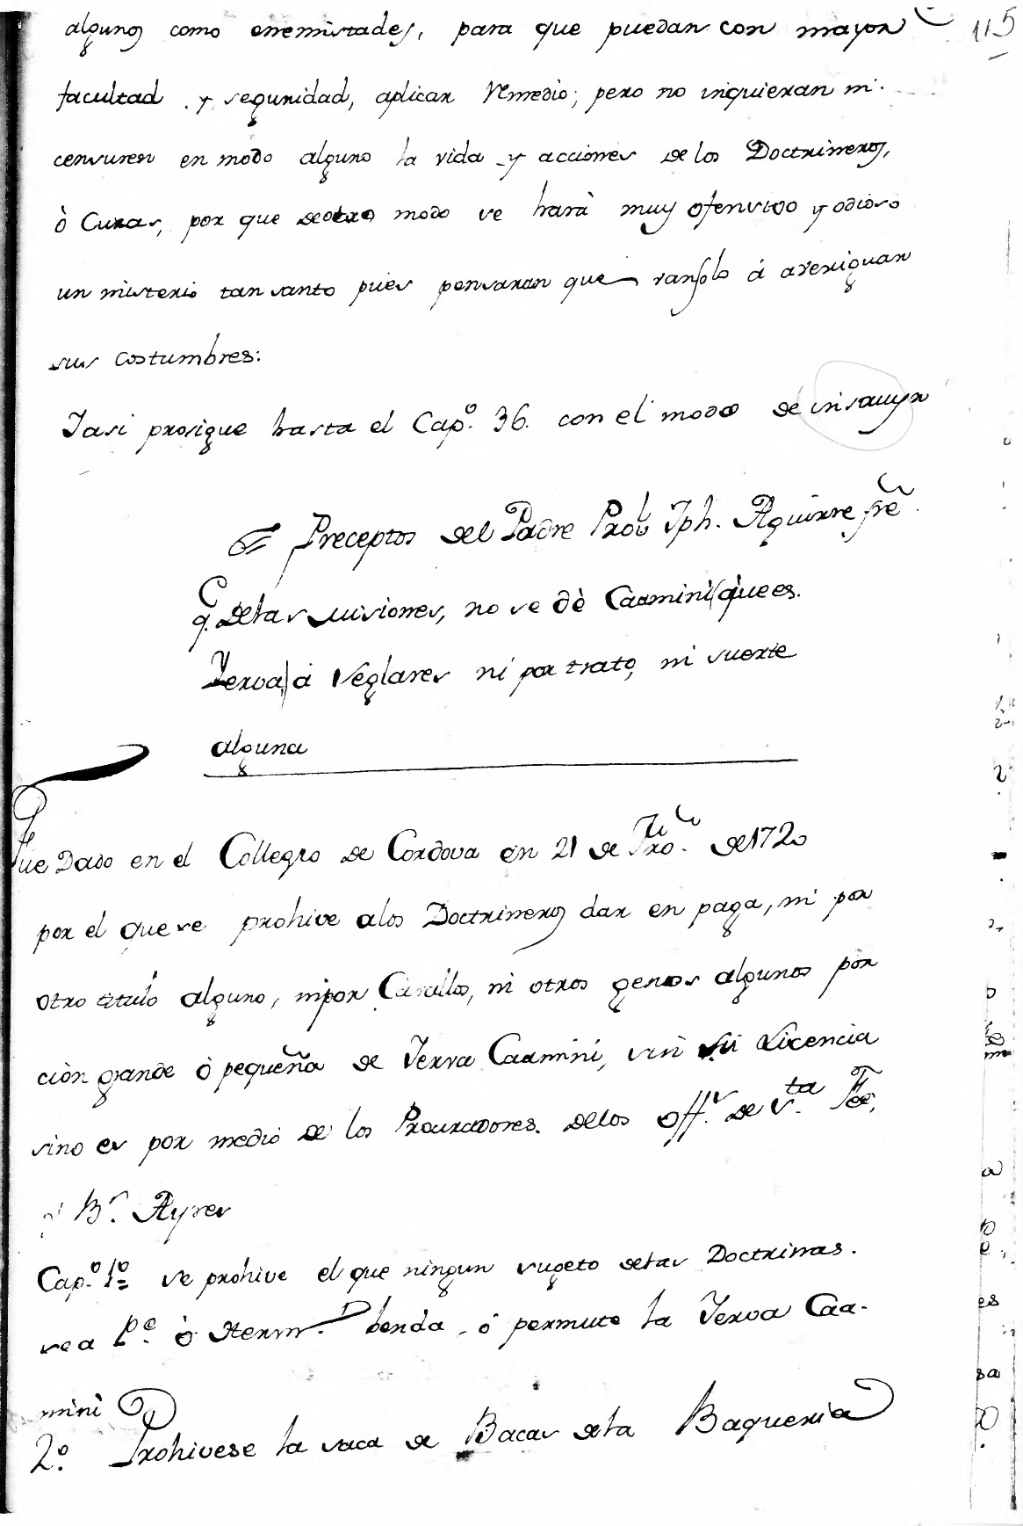 115
algunos como enemistades, para que puedan con mayor
facultad y seguridad, aplicar remedio; pero no inquieran ni
censuren en modo alguno la vida y acciones de los Doctrineros,
ò Curas, por que deotro modo se harà muy ofensivo y odioso
un misterio tan santo pues pensaran que vansolo á averiguar
sus costumbres:
Iasi prosigue hasta el Capº. 36. con el modo de
Preceptos del Padre Proul Iph. Aguirre,
q. delas misiones, no se dè Caamini (que es
Yerva) á seglares ni por trato, ni suerte
alguna
Fue Dado en el Collegio de Cordova en 21 de de 1720
por el que se prohive alos Doctrineros dar en paga, ni por
otro titulo alguno, nipor Cavallos, ni otros generos algunos por
ciòn grande ò pequeña de Yerva Caamini, sin su Licencia
sino es por medio de los Procuradores. delos offs. de Sta. Fee,
Bs. Ayres
Capº. 1º se prohive el que ningun sugeto delas Doctrinas.
sea Pe. ò Herm. benda, ó permute la Yerva Caa-
mini
2º. Prohivese la saca de Bacas dela Baqueria